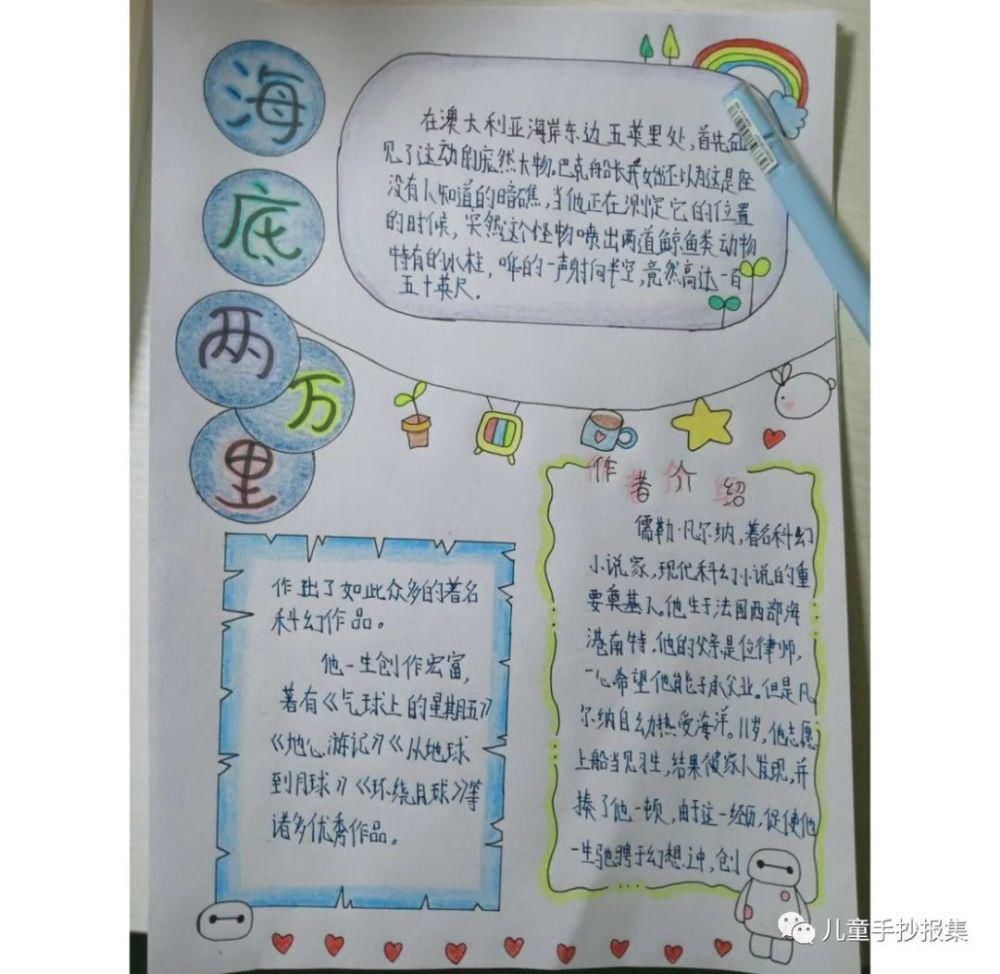 海
底
两
万
里
在澳大利亚海岸东边五英里处,首先碰
见了这动的庞然大物。巴克船长开始还以为这是座
没有人知道的暗礁,当他正在测定它的位置
的时候,突然这个怪物喷出两道鲸鱼类动物
特有的水柱,哗的一声射向半空,竟然高达一百
五十英尺.
作者介绍
儒勒·凡尔纳,著名科幻
小说家,现代科幻小说的重
要奠基人。他生于法国西部海
港南特,他的父亲是位律师,
一心希望他能子承父业。但是凡
尔纳自幼热爱海洋。11岁,他志愿
上船当见习生,结果被家人发现,并
揍了他一顿,由于这一经历,促使他
一生驰骋于幻想之中,创
作出了如此众多的著名
科幻作品。
他一生创作宏富,
著有《气球上的星期五》
《地心游记》《从地球
到月球》《环绕月球》等
诸多优秀作品。
儿童手抄报集